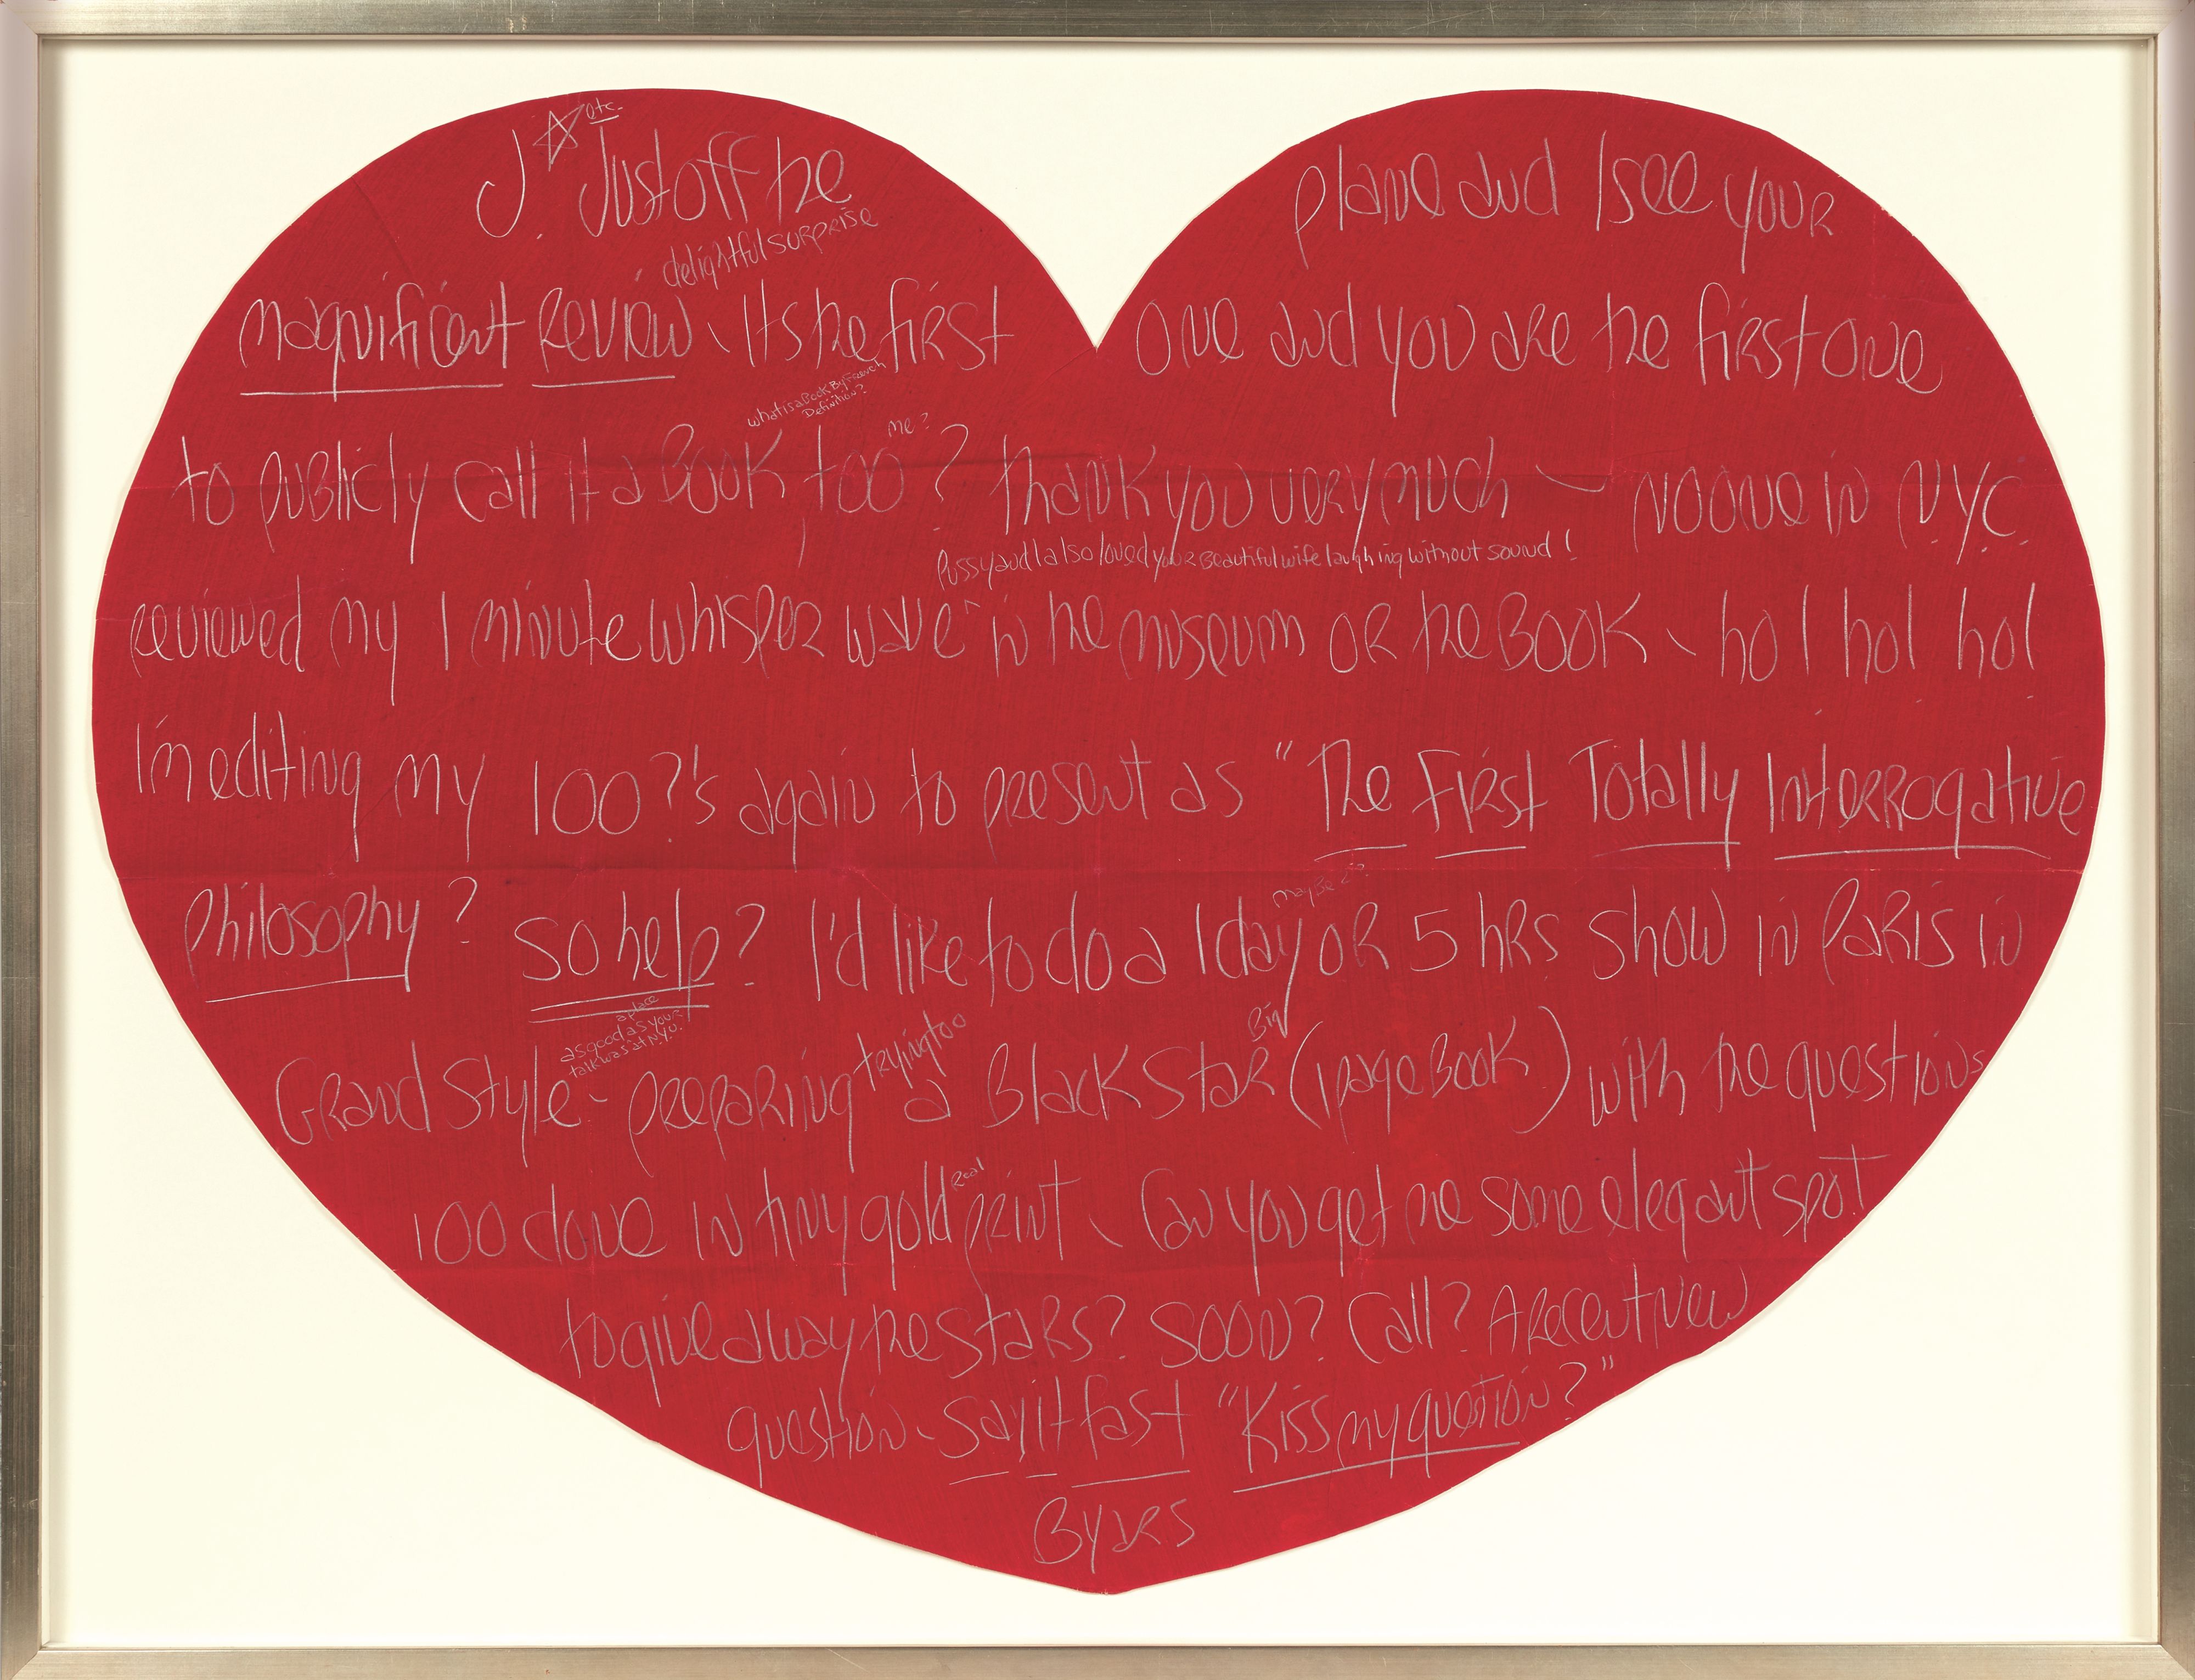 J. etc. Just off the plane and I see your
delightful surprise
magnificent Review - Its the first one and you are the first one
what is a Book By French
Definition?
me?
to puBlicly call it a BOOK, too? thank you very much - no one in N.Y.C.
Pussy and I also loved your Beautiful wife laughing without sound!
reviewed my 1 minute whisper wave ^ in the museum OR the BOOK - ho! ho! ho!
I'm editing my 100?'s again to present as "The First Totally Interrogative
mayBe 2??
Philosophy? So help? I'd like to do a 1 day OR 5 hrs. show in Paris in
a place
as good as your
talk was at N.Y.U.
trying too
Big
Grand Style - preparing a Black Star (1 page Book) with the questions
Real
100 done in tiny gold print - Can you get me some elegant spot
to give away the stars? Soon? Call? A Recent new
question - Say it fast "Kiss my question?"
Byars